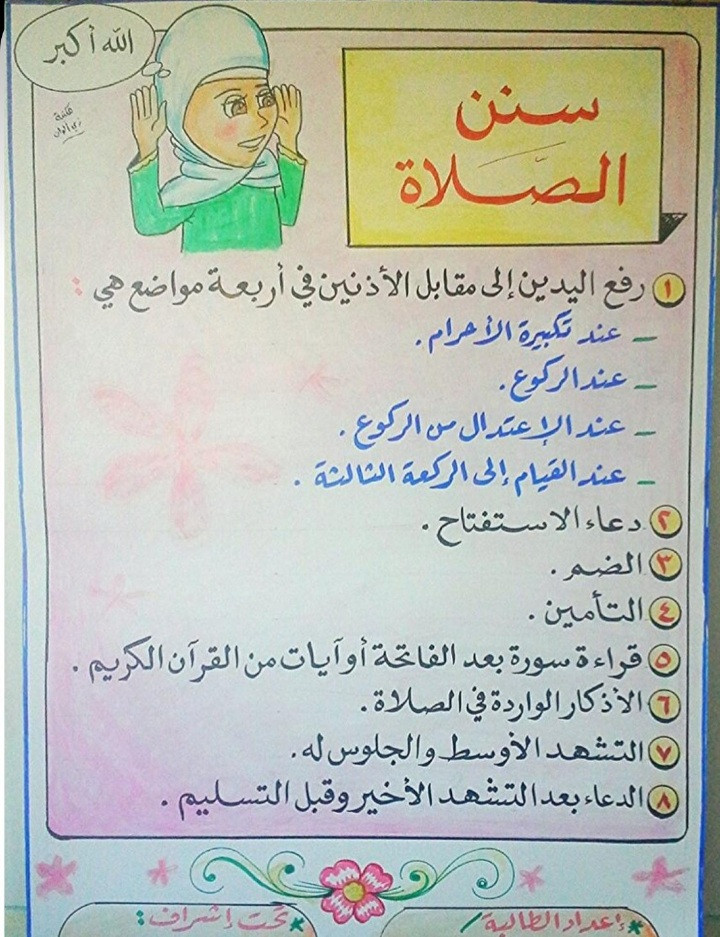 الله أكبر
سنن
الصَّلاة
١ رفع اليدين إلى مقابل الأذنين في أربعة مواضع هي :
– عند تكبيرة الأحرام .
– عند الركوع .
– عند الإعتدال من الركوع .
– عند القيام إلى الركعة الثالثة .
٢ دعاء الاستفتاح .
٣ الضم .
٤ التأمين .
٥ قراءة سورة بعد الفاتحة أو آيات من القرآن الكريم .
٦ الأذكار الواردة في الصلاة .
٧ التشهد الأوسط والجلوس له .
٨ الدعاء بعد التشهد الأخير وقبل التسليم .
* إعداد الطالبة /
* تحت إشراف :